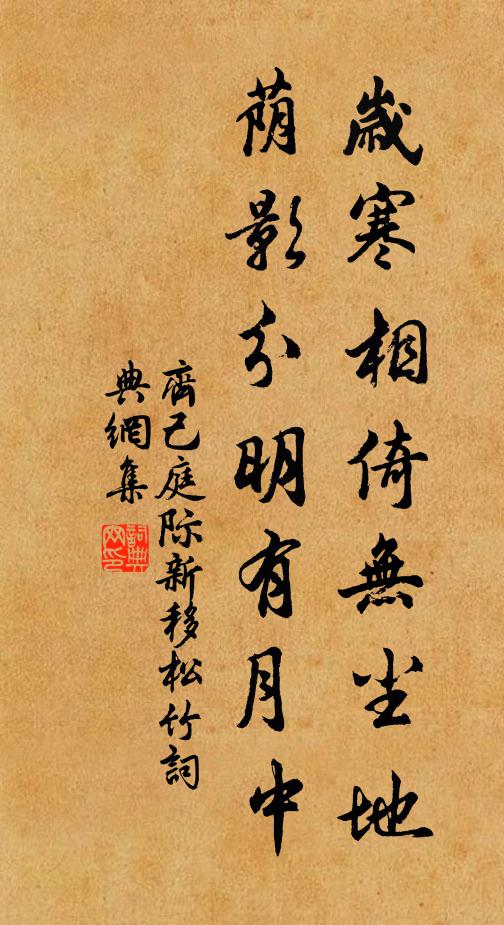 歲寒相倚無尘地
荫影分明有月中
齊己庭际新移松竹詞
典網集
詞典
网印